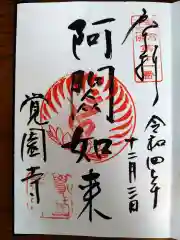 奉拝
令和四年
十二月三日
阿閦如来
覚園寺